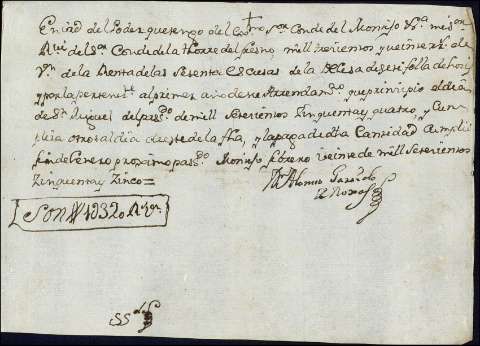 En vrd del Poder que tengo del Conde del Montijo
Conde de la Torre del fresno, mill trecientos y veinte Rs. de
Vn. de la Renta de las Sesenta Escusas de la
y por la pertenec.te al primer año de este Arrendam.to que prinzipio el dia
de Sn. Miguel del pas.do de mill Setezientos Zinquenta y quatro, y Cum-
plira otro tal dia de este de la fha, y la paga de dha Cantidad Cumplio
fin de Enero proximo pas.do Montijo, febrero veinte de mill Setezientos
Zinquenta y Zinco=
Dn. Alonso Garrido
SON 1D320 Rs. Vn.